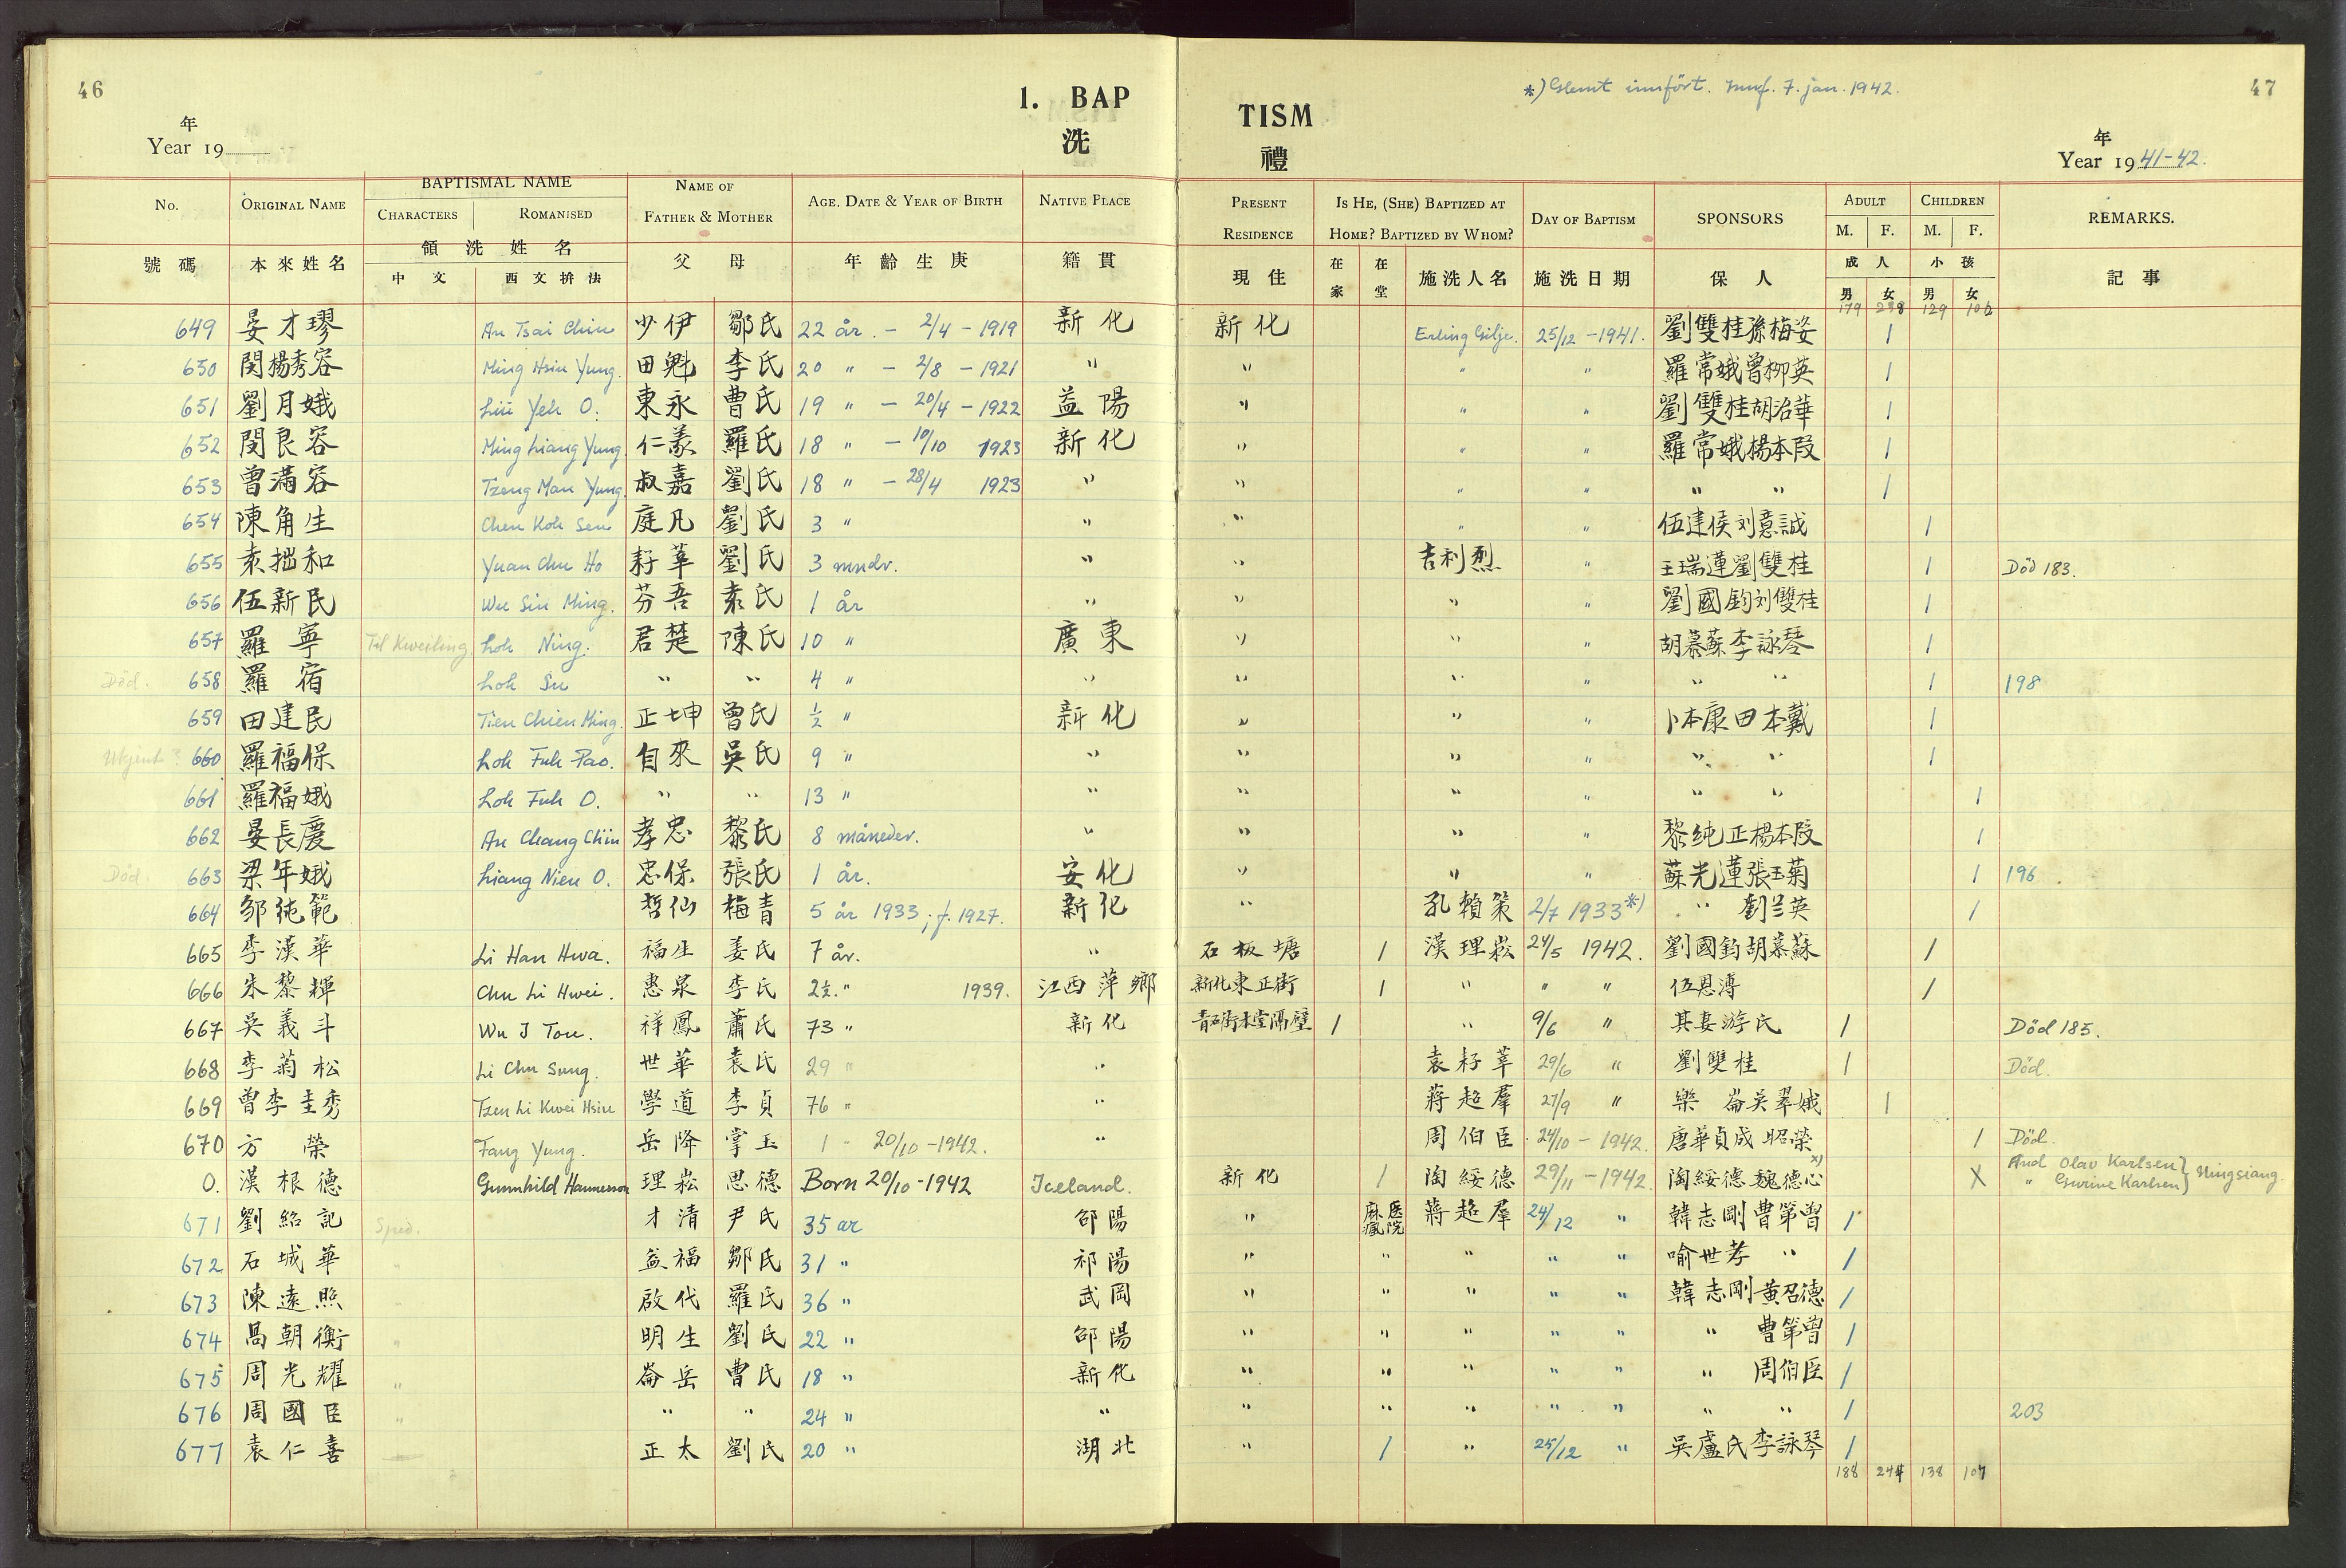 46
1. BAP
年
Year 19
洗
TISM
禮
*) Glemt innført. Innf. 7. jan. 1942.
47
年
Year 1941-42.
No. ORIGINAL NAME BAPTISMAL NAME NAME OF FATHER & MOTHER AGE. DATE & YEAR OF BIRTH NATIVE PLACE PRESENT RESIDENCE IS HE, (SHE) BAPTIZED AT HOME? BAPTIZED BY WHOM? DAY OF BAPTISM SPONSORS ADULT CHILDREN REMARKS.
CHARACTERS ROMANISED M. F. M. F.
號碼 本來姓名 領洗姓名 父母 年齡生庚 籍貫 現住 在家 在堂 施洗人名 施洗日期 保人 成人 小孩 記事
中文 西文拚法 男 女 男 女
179 238 129 106
649 晏才璆 An Tsai Chiu 少伊 鄒氏 22 år. - 2/4 - 1919 新化 新化 Erling Gilje. 25/12 - 1941. 劉雙桂孫梅姿 1
650 閔楊秀容 Ming Hsiu Yung. 田魁 李氏 20 " - 2/8 - 1921 " " " " 羅常娥曾柳英 1
651 劉月娥 Liu Yeh O. 東永 曹氏 19 " - 20/4 - 1922 益陽 " " " 劉雙桂胡治華 1
652 閔良容 Ming Liang Yung. 仁義 羅氏 18 " - 10/10 1923 新化 " " " 羅常娥楊本段 1
653 曾滿容 Tzeng Man Yung. 叔嘉 劉氏 18 " - 28/4 1923 " " " " " " 1
654 陳角生 Chen Koh Sen 庭凡 劉氏 3 " " " " " 伍建侯刘意誠 1
655 袁拙和 Yuan Chu Ho 耔莘 劉氏 3 mndr. " " 吉利烈 " 王瑞蓮劉雙桂 1 Död 183.
656 伍新民 Wu Sin Ming. 芬吾 袁氏 1 år " " " " 劉國鈞刘雙桂 1
657 羅寧 Til Kweiling Loh Ning. 君楚 陳氏 10 " 廣東 " " " 胡慕蘇李詠琴 1
Död. 658 羅宿 Loh Su " " 4 " " " " " " " 1 198
659 田建民 Tien Chien Ming. 正坤 曾氏 ½ " 新化 " " " 卜本康田本戴 1
Ukjent? 660 羅福保 Loh Fuh Pao. 自來 吳氏 9 " " " " " " " 1
661 羅福娥 Loh Fuh O. " " 13 " " " " " " " 1
662 晏長慶 An Chang Chin 孝忠 黎氏 8 måneder. " " " " 黎純正楊本段 1
Död. 663 梁年娥 Liang Nien O. 忠保 張氏 1 år. 安化 " " " 蘇光蓮張玉菊 1 196
664 鄒純範 哲仙 梅青 5 år 1933; f. 1927. 新化 " 孔賴策 2/7 1933 *) " 劉兰英 1
665 李漢華 Li Han Hwa. 福生 姜氏 7 år. " 石板塘 1 漢理崧 24/5 1942. 劉國鈞胡慕蘇 1
666 朱黎輝 Chu Li Hwei. 惠泉 李氏 2½. " 1939. 江西萍鄉 新化東正街 1 " " " 伍恩溥 1
667 吳義斗 Wu I Tou. 祥鳳 蕭氏 73 " 新化 青石街本堂隔壁 1 " 9/6 " 其妻游氏 1 Död 185.
668 李菊松 Li Chu Sung. 世華 袁氏 29 " " 袁耔莘 29/6 " 劉雙桂 1 Död.
669 曾李圭秀 Tzen Li Kwei Hsiu 學道 李貞 76 " " 蔣超羣 27/9 " 樂崙吳翠娥 1
670 方榮 Fang Yung. 岳降 掌玉 1 " 20/10 - 1942. " 周伯臣 24/10 - 1942. 唐華貞成昭榮 1 Död.
0. 漢根德 Gunnhild Hannesson 理崧 思德 Born 20/10 - 1942 Iceland. 新化 1 陶綏德 29/11 - 1942. 陶綏德魏德心 x) X And Olav Karlsen } " Gurine Karlsen } Ningsiang.
671 劉紹記 Sped. 才清 尹氏 35 ar 邵陽 " 麻瘋医院 蔣超羣 24/12 " 韓志剛曹第曾 1
672 石城華 " 益福 鄒氏 31 " 祁陽 " " " " " 喻世孝 " 1
673 陳遠照 " 啟代 羅氏 36 " 武岡 " " " " " 韓志剛黃召德 1
674 禼朝衡 " 明生 劉氏 22 " 邵陽 " " " " " " 曹第曾 1
675 周光耀 " 崙岳 曹氏 18 " 新化 " " " " " " 周伯臣 1
676 周國臣 " " " 24 " " " " " " " " " 1 203
677 袁仁喜 正太 劉氏 20 " 湖北 " 1 " 25/12 " 吳盧氏李詠琴 1
188 244 138 107